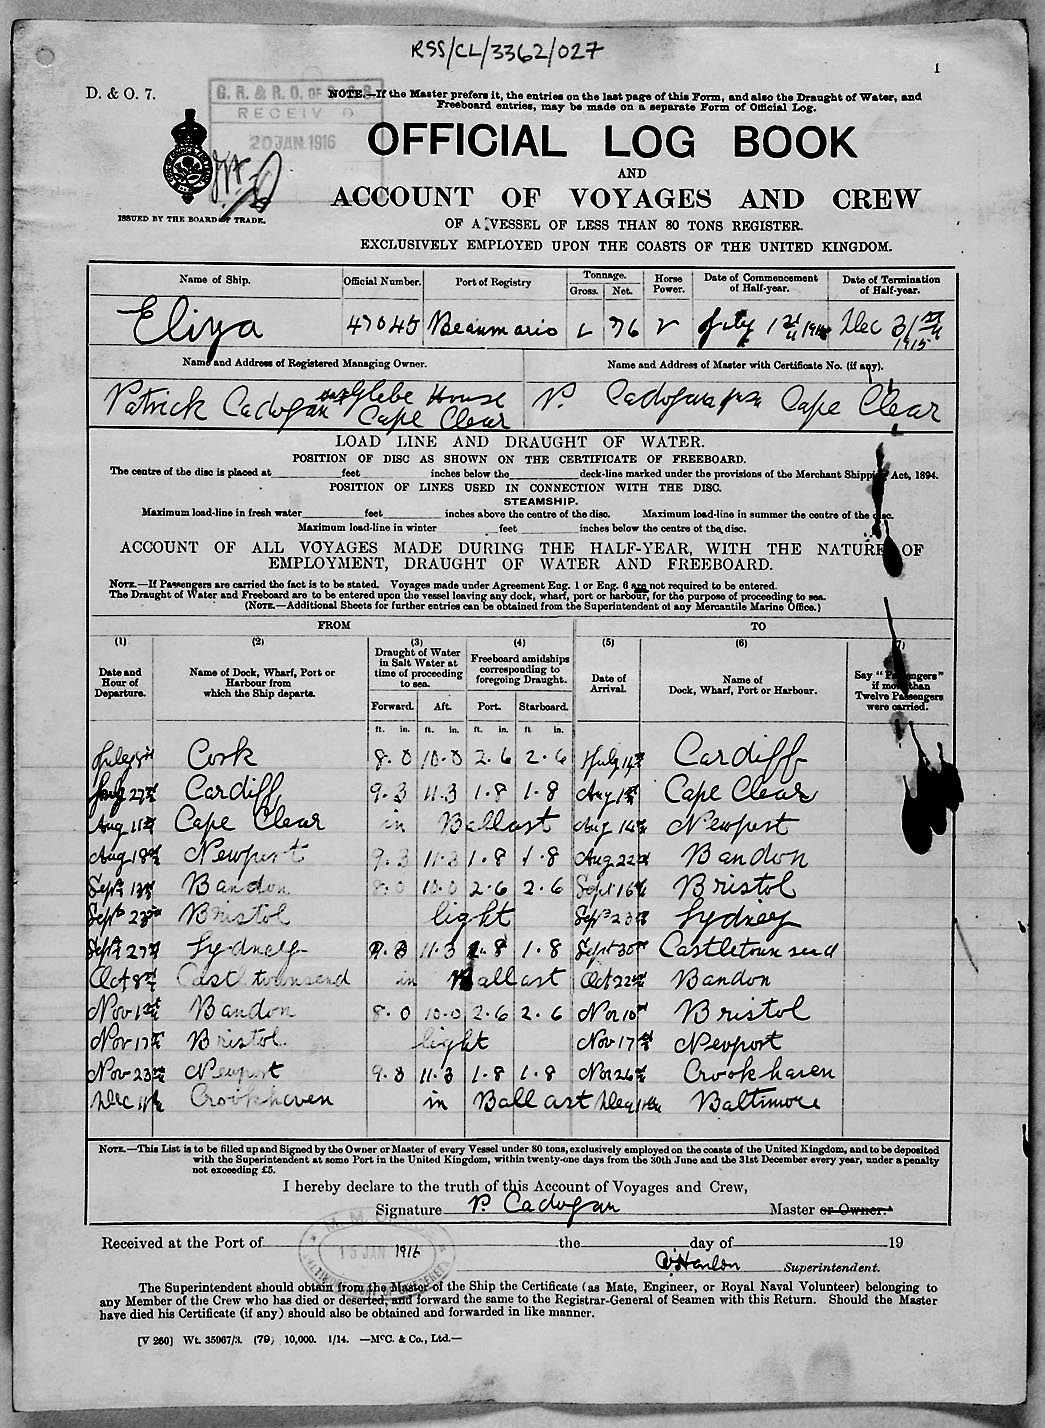 RSS/CL/3362/027
1
D. & O. 7.
G. R. & R. O. OF S. & S.
RECEIVED
20 JAN. 1916
NOTE.—If the Master prefers it, the entries on the last page of this Form, and also the Draught of Water, and
Freeboard entries, may be made on a separate Form of Official Log.
OFFICIAL LOG BOOK
AND
ACCOUNT OF VOYAGES AND CREW
ISSUED BY THE BOARD OF TRADE.
OF A VESSEL OF LESS THAN 80 TONS REGISTER.
EXCLUSIVELY EMPLOYED UPON THE COASTS OF THE UNITED KINGDOM.
Name of Ship. Official Number. Port of Registry Tonnage. Gross. Net. Horse Power. Date of Commencement of Half-year. Date of Termination of Half-year.
Eliza 47045 Beaumaris 76 July 1st 1915 Dec 31st 1915
Name and Address of Registered Managing Owner. Name and Address of Master with Certificate No. (if any).
Patrick Cadogan Glebe House P. Cadogan Cape Clear
Cape Clear
LOAD LINE AND DRAUGHT OF WATER.
POSITION OF DISC AS SHOWN ON THE CERTIFICATE OF FREEBOARD.
The centre of the disc is placed at feet inches below the deck-line marked under the provisions of the Merchant Shipping Act, 1894.
POSITION OF LINES USED IN CONNECTION WITH THE DISC.
STEAMSHIP.
Maximum load-line in fresh water feet inches above the centre of the disc. Maximum load-line in summer the centre of the disc.
Maximum load-line in winter feet inches below the centre of the disc.
ACCOUNT OF ALL VOYAGES MADE DURING THE HALF-YEAR, WITH THE NATURE OF
EMPLOYMENT, DRAUGHT OF WATER AND FREEBOARD.
NOTE.—If Passengers are carried the fact is to be stated. Voyages made under Agreement Eng. 1 or Eng. 6 are not required to be entered.
The Draught of Water and Freeboard are to be entered upon the vessel leaving any dock, wharf, port or harbour, for the purpose of proceeding to sea.
(NOTE.—Additional Sheets for further entries can be obtained from the Superintendent of any Mercantile Marine Office.)
FROM TO
(1) (2) (3) (4) (5) (6) (7)
Date and Hour of Departure. Name of Dock, Wharf, Port or Harbour from which the Ship departs. Draught of Water in Salt Water at time of proceeding to sea. Freeboard amidships corresponding to foregoing Draught. Date of Arrival. Name of Dock, Wharf, Port or Harbour. Say "Passengers" if more than Twelve Passengers were carried.
Forward. Aft. Port. Starboard.
ft. in. ft. in. ft. in. ft. in.
July 8th Cork 8.0 10.0 2.6 2.6 July 14th Cardiff
27th Cardiff 9.3 11.3 1.8 1.8 Aug 1st Cape Clear
Aug 11th Cape Clear in Ballast Aug 14th Newport
Aug 18th Newport 9.3 11.3 1.8 1.8 Aug 22nd Bandon
Sept 13th Bandon 8.0 10.0 2.6 2.6 Sept 16th Bristol
Sept 23rd Bristol light Sept 23rd Lydney
Sept 27th Lydney 9.3 11.3 1.8 1.8 Sept 30th Castletownsend
Oct 8th Castletownsend in Ballast Oct 22nd Bandon
Nov 1st Bandon 8.0 10.0 2.6 2.6 Nov 10th Bristol
Nov 17th Bristol light Nov 17th Newport
Nov 23rd Newport 9.3 11.3 1.8 1.8 Nov 26th Crookhaven
Dec 11th Crookhaven in Ballast Dec 11th Baltimore
NOTE.—This List is to be filled up and Signed by the Owner or Master of every Vessel under 80 tons, exclusively employed on the coasts of the United Kingdom, and to be deposited
with the Superintendent at some Port in the United Kingdom, within twenty-one days from the 30th June and the 31st December every year, under a penalty
not exceeding £5.
I hereby declare to the truth of this Account of Voyages and Crew,
Signature P. Cadogan Master or Owner.*
15 JAN 1916
Received at the Port of the day of 19
Superintendent.
The Superintendent should obtain from the Master of the Ship the Certificate (as Mate, Engineer, or Royal Naval Volunteer) belonging to
any Member of the Crew who has died or deserted, and forward the same to the Registrar-General of Seamen with this Return. Should the Master
have died his Certificate (if any) should also be obtained and forwarded in like manner.
[V 260] Wt. 35967/3. (79) 10,000. 1/14. —McC. & Co., Ltd.—